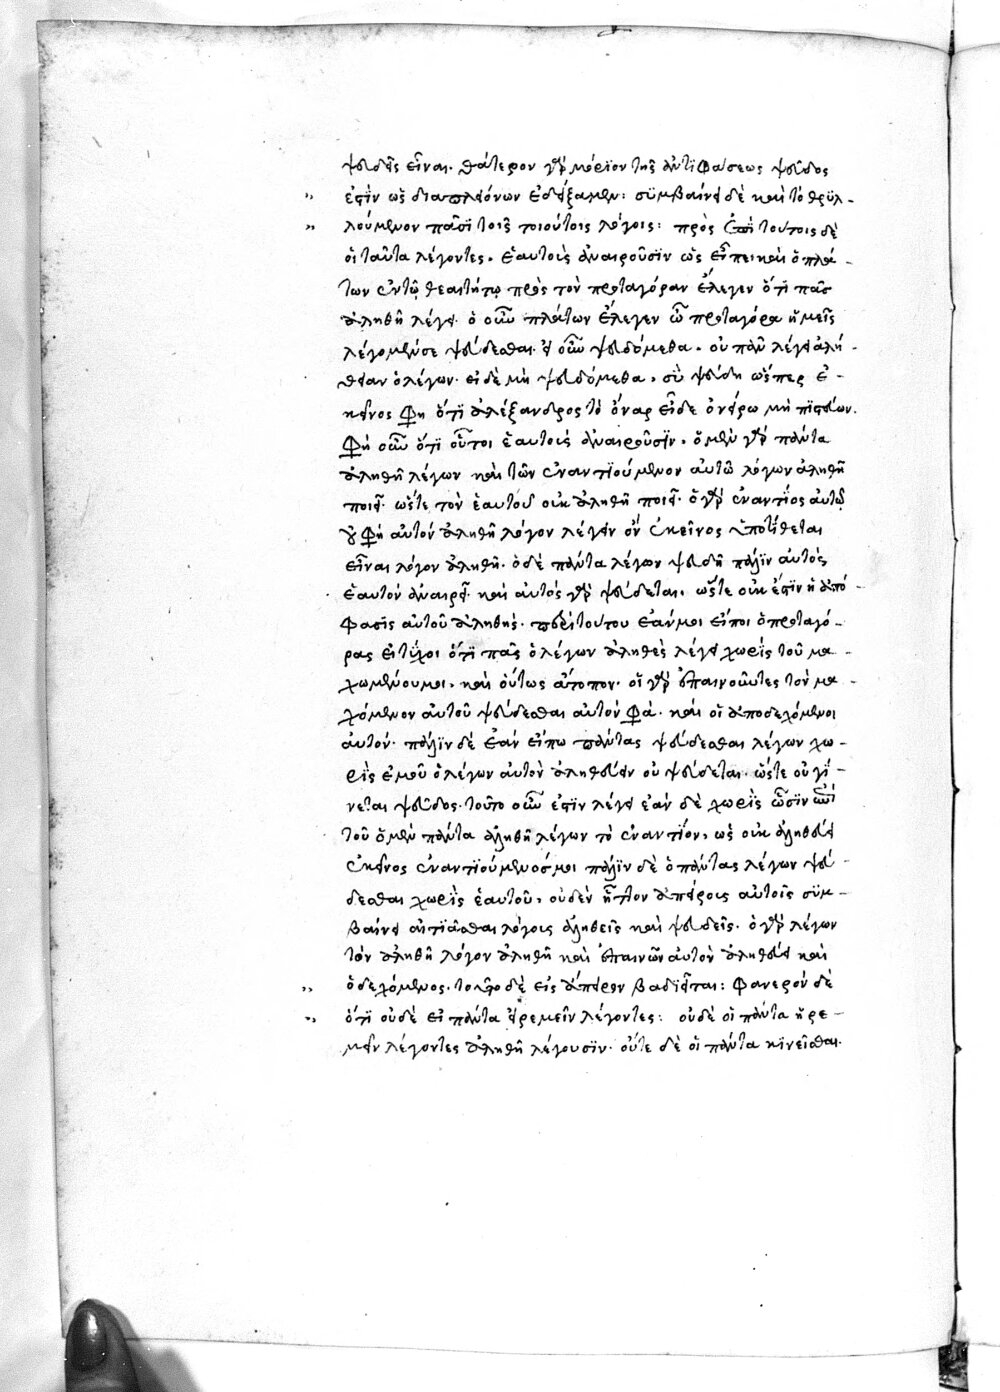 ψευδεῖς εἶναι. θάτερον γὰρ μόριον τῆς ἀντιφάσεως ψεῦδος
ἐστὶν ὡς διαπλεόνων ἐδείξαμεν: συμβαίνει δὲ καὶ τὸ θρυλ-
λούμενον πᾶσι τοῖς τοιούτοις λόγοις: πρὸς ἐπὶ τούτοις δὲ
οἱ ταῦτα λέγοντες. ἑαυτοὺς ἀναιροῦσιν ὡς εἶπε καὶ ὁ πλά-
των ἐν τῷ θεαιτήτῳ πρὸς τὸν πρωταγόραν ἔλεγεν ὅτι πᾶς
ἀληθῆ λέγει. ὁ οὖν πλάτων ἔλεγεν ὦ πρωταγόρα ἡμεῖς
λέγομέν σε ψεύδεσθαι. εἰ οὖν ψευδόμεθα. οὐ πᾶν λέγει ἀλή-
θειαν ὁ λέγων. εἰ δὲ μὴ ψευδόμεθα. σὺ ψεύδῃ ὥσπερ ἐ-
κεῖνος φη ὅτι ἀλέξανδρος τὸ ὄναρ εἶδε ὀνείρω μὴ πιστεύων.
φη οὖν ὅτι οὗτοι ἑαυτοὺς ἀναιροῦσιν. ὁ μὲν γὰρ πάντα
ἀληθῆ λέγων καὶ τῶν ἐναντιούμενον αὐτῶ λόγων ἀληθῆ
ποιεῖ. ὥστε τὸν ἑαυτοῦ οὐκ ἀληθῆ ποιεῖ. ὁ γὰρ ἐναντίος αὐτῶ
οὔ φη αὐτὸν ἀληθῆ λόγον λέγειν ὃν ἐκεῖνος ὑποτίθεται
εἶναι λόγον ἀληθῆ. ὁ δὲ πάντα λέγων ψευδῆ πάλιν αὐτὸς
ἑαυτὸν ἀναιρεῖ. καὶ αὐτὸς γὰρ ψεύδεται. ὥστε οὐκ ἔστιν ἡ ἀπό-
φασις αὐτοῦ ἀληθής. περὶ τούτου ἐάν μοι εἴποι ὁ πρωταγό-
ρας εἰ τύχοι ὅτι πᾶς ὁ λέγων ἀληθὲς λέγει χωρὶς τοῦ μα-
χωμένου μοι. καὶ οὕτως ἄτοπον. οἱ γὰρ ἐπαινοῦντες τὸν μα-
χόμενον αὐτοῦ ψεύδεσθαι αὐτὸν φα. καὶ οἱ ἀποδεχόμενοι
αὐτόν. πάλιν δὲ ἐὰν εἴπω πάντας ψεύδεσθαι λέγων χω-
ρὶς ἐμοῦ ὁ λέγων αὐτὸν ἀληθεύειν οὐ ψεύδεται. ὥστε οὐ γί-
νεται ψεῦδος. τοῦτο οὖν ἐστιν λέγει ἐὰν δὲ χωρὶς ὦσιν ἐπὶ
τοῦ ὁ μὲν πάντα ἀληθῆ λέγων τὸ ἐναντίον, ὡς οὐκ ἀληθεύει
ἐκεῖνος ἐναντιούμενός μοι πάλιν δὲ ὁ πάντας λέγων ψεύ-
δεσθαι χωρὶς ἑαυτοῦ. οὐδὲν ἧττον ἀπείροις αὐτοῖς συμ-
βαίνει αἰτιᾶσθαι λόγοις ἀληθεῖς καὶ ψευδεῖς. ὁ γὰρ λέγων
τὸν ἀληθῆ λόγον ἀληθῆ καὶ ἐπαινῶν αὐτὸν ἀληθεύει καὶ
ὁ δεχόμενος. τοῦτο δὲ εἰς ἄπειρον βαδιεῖται: φανερὸν δὲ
ὅτι οὐδὲ εἰ πάντα ἠρεμεῖν λέγοντες: οὐδὲ οἱ πάντα ἠρε-
μεῖν λέγοντες ἀληθῆ λέγουσιν. οὔτε δὲ οἱ πάντα κινεῖσθαι.